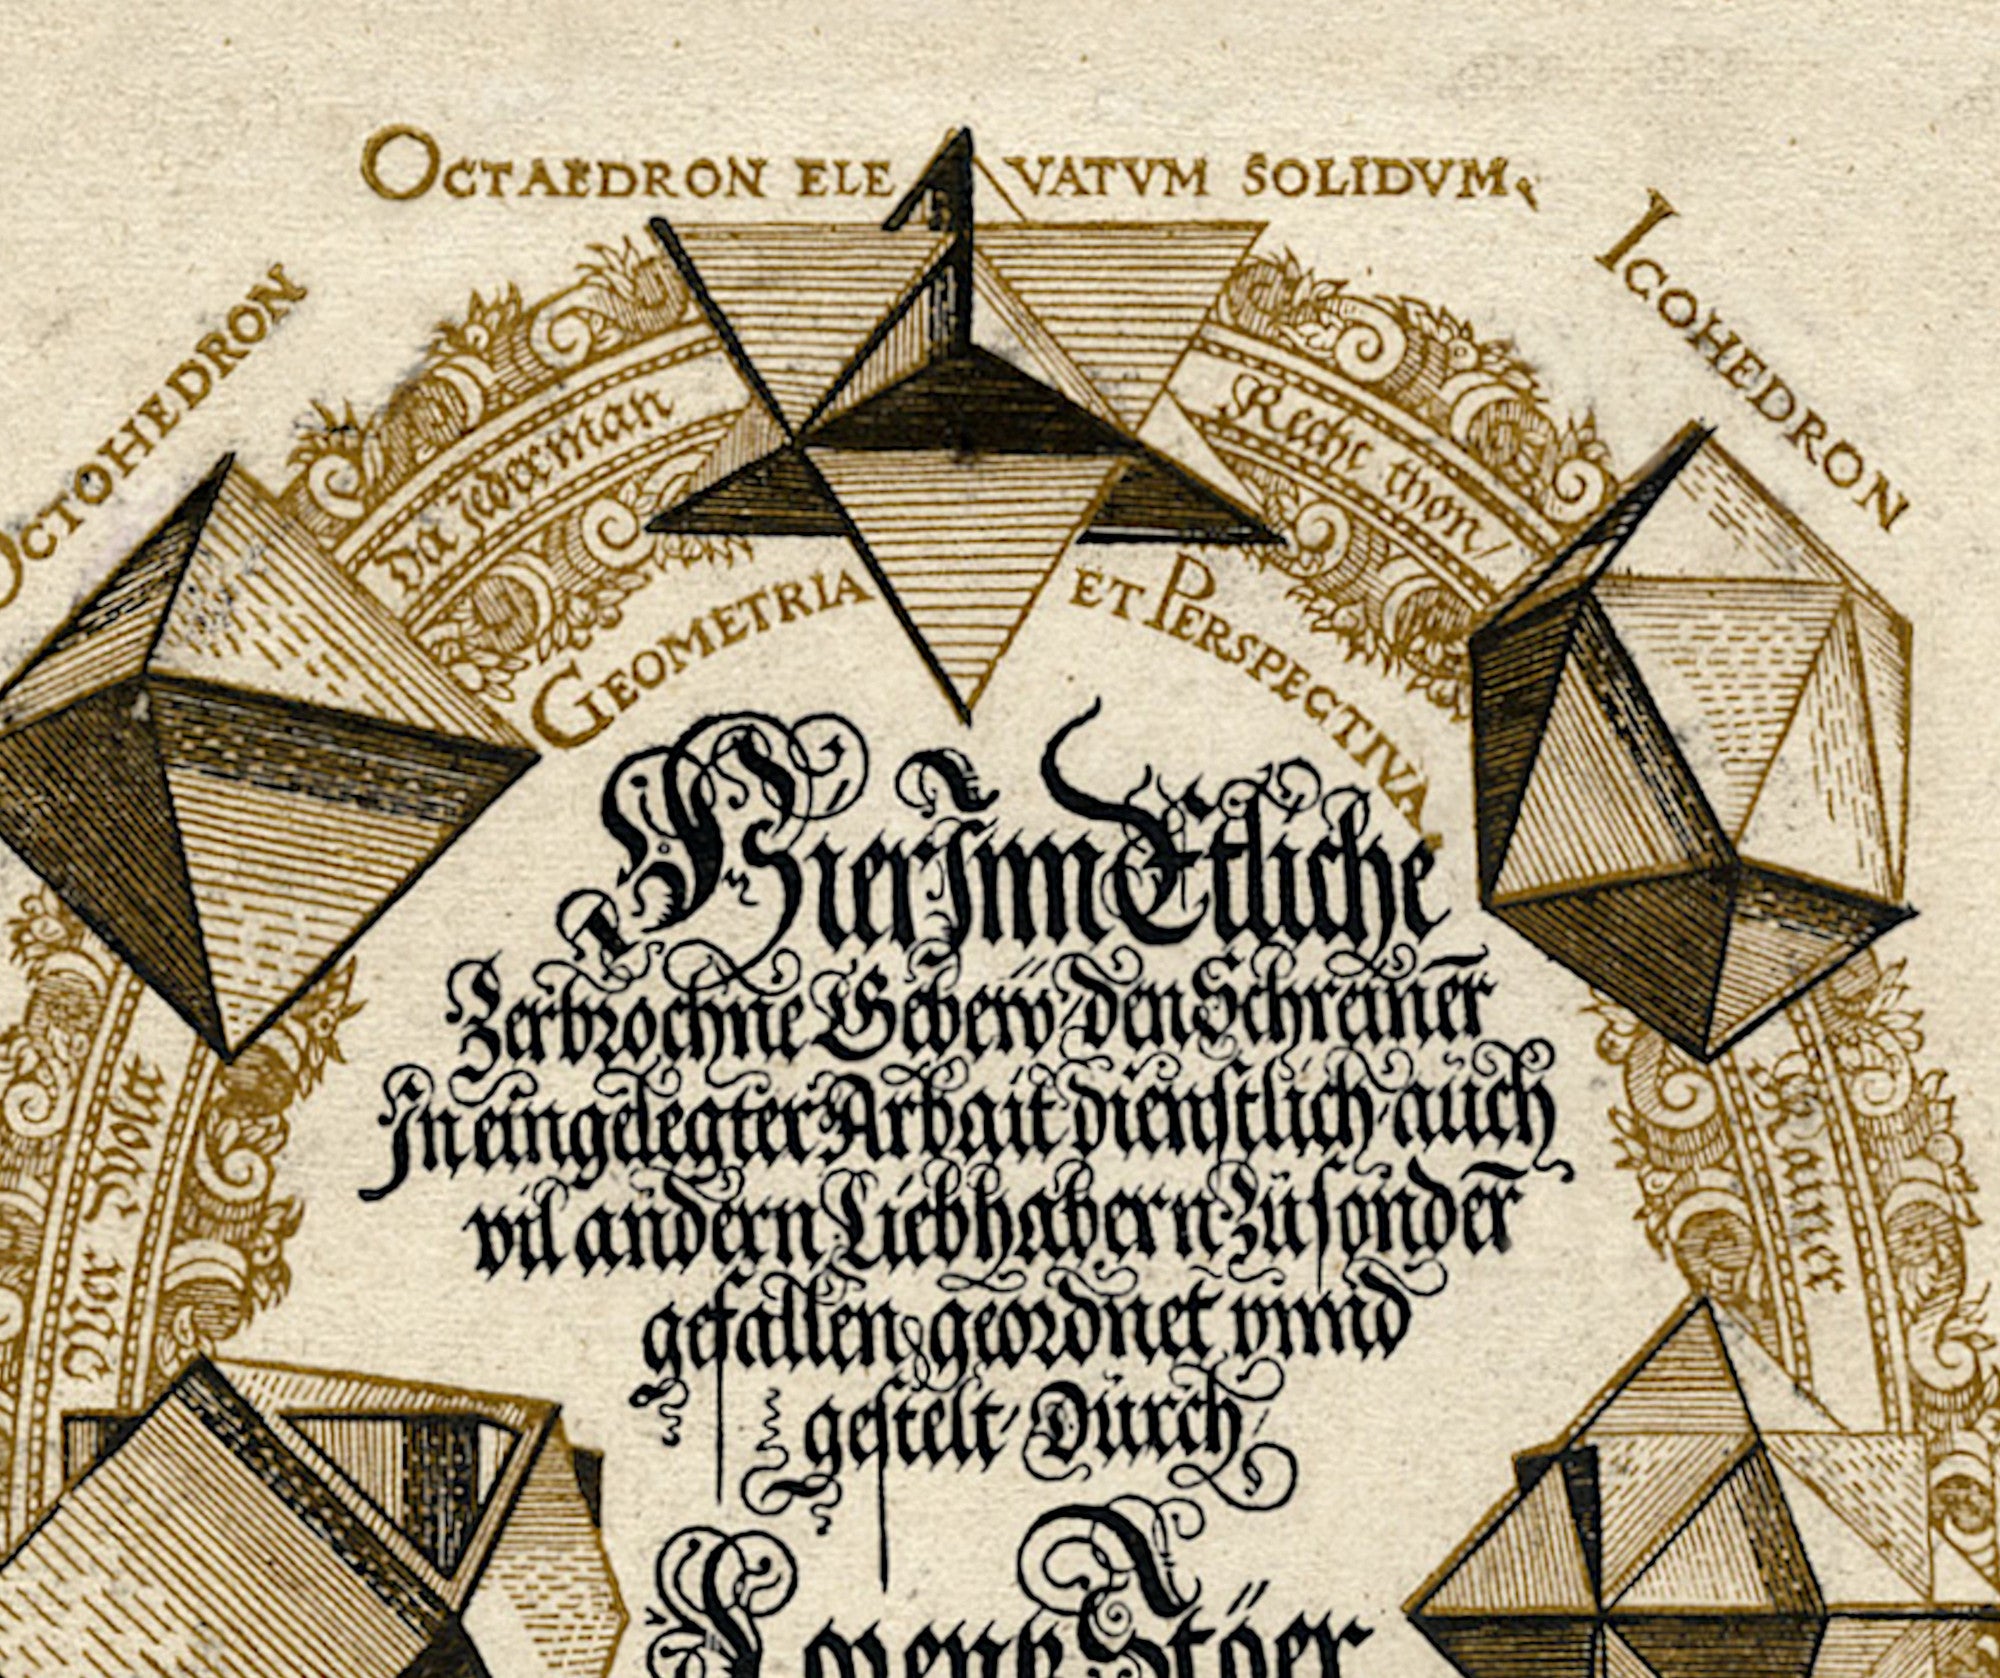 OCTAEDRON ELEVATVM SOLIDVM.
OCTOHEDRON
ICOHEDRON
Wer Wolt
Da jederman
Recht thon/
Kainer
GEOMETRIA ET PERSPECTIVA.
Hier Inn Etliche
Zerbrochne Gebew/ den Schreiner
In eingelegter Arbait dienstlich/ auch
vil andern Liebhabern Zu sonder
gefallen geordnet vnnd
gestelt/ Durch/
Lorentz Stöer